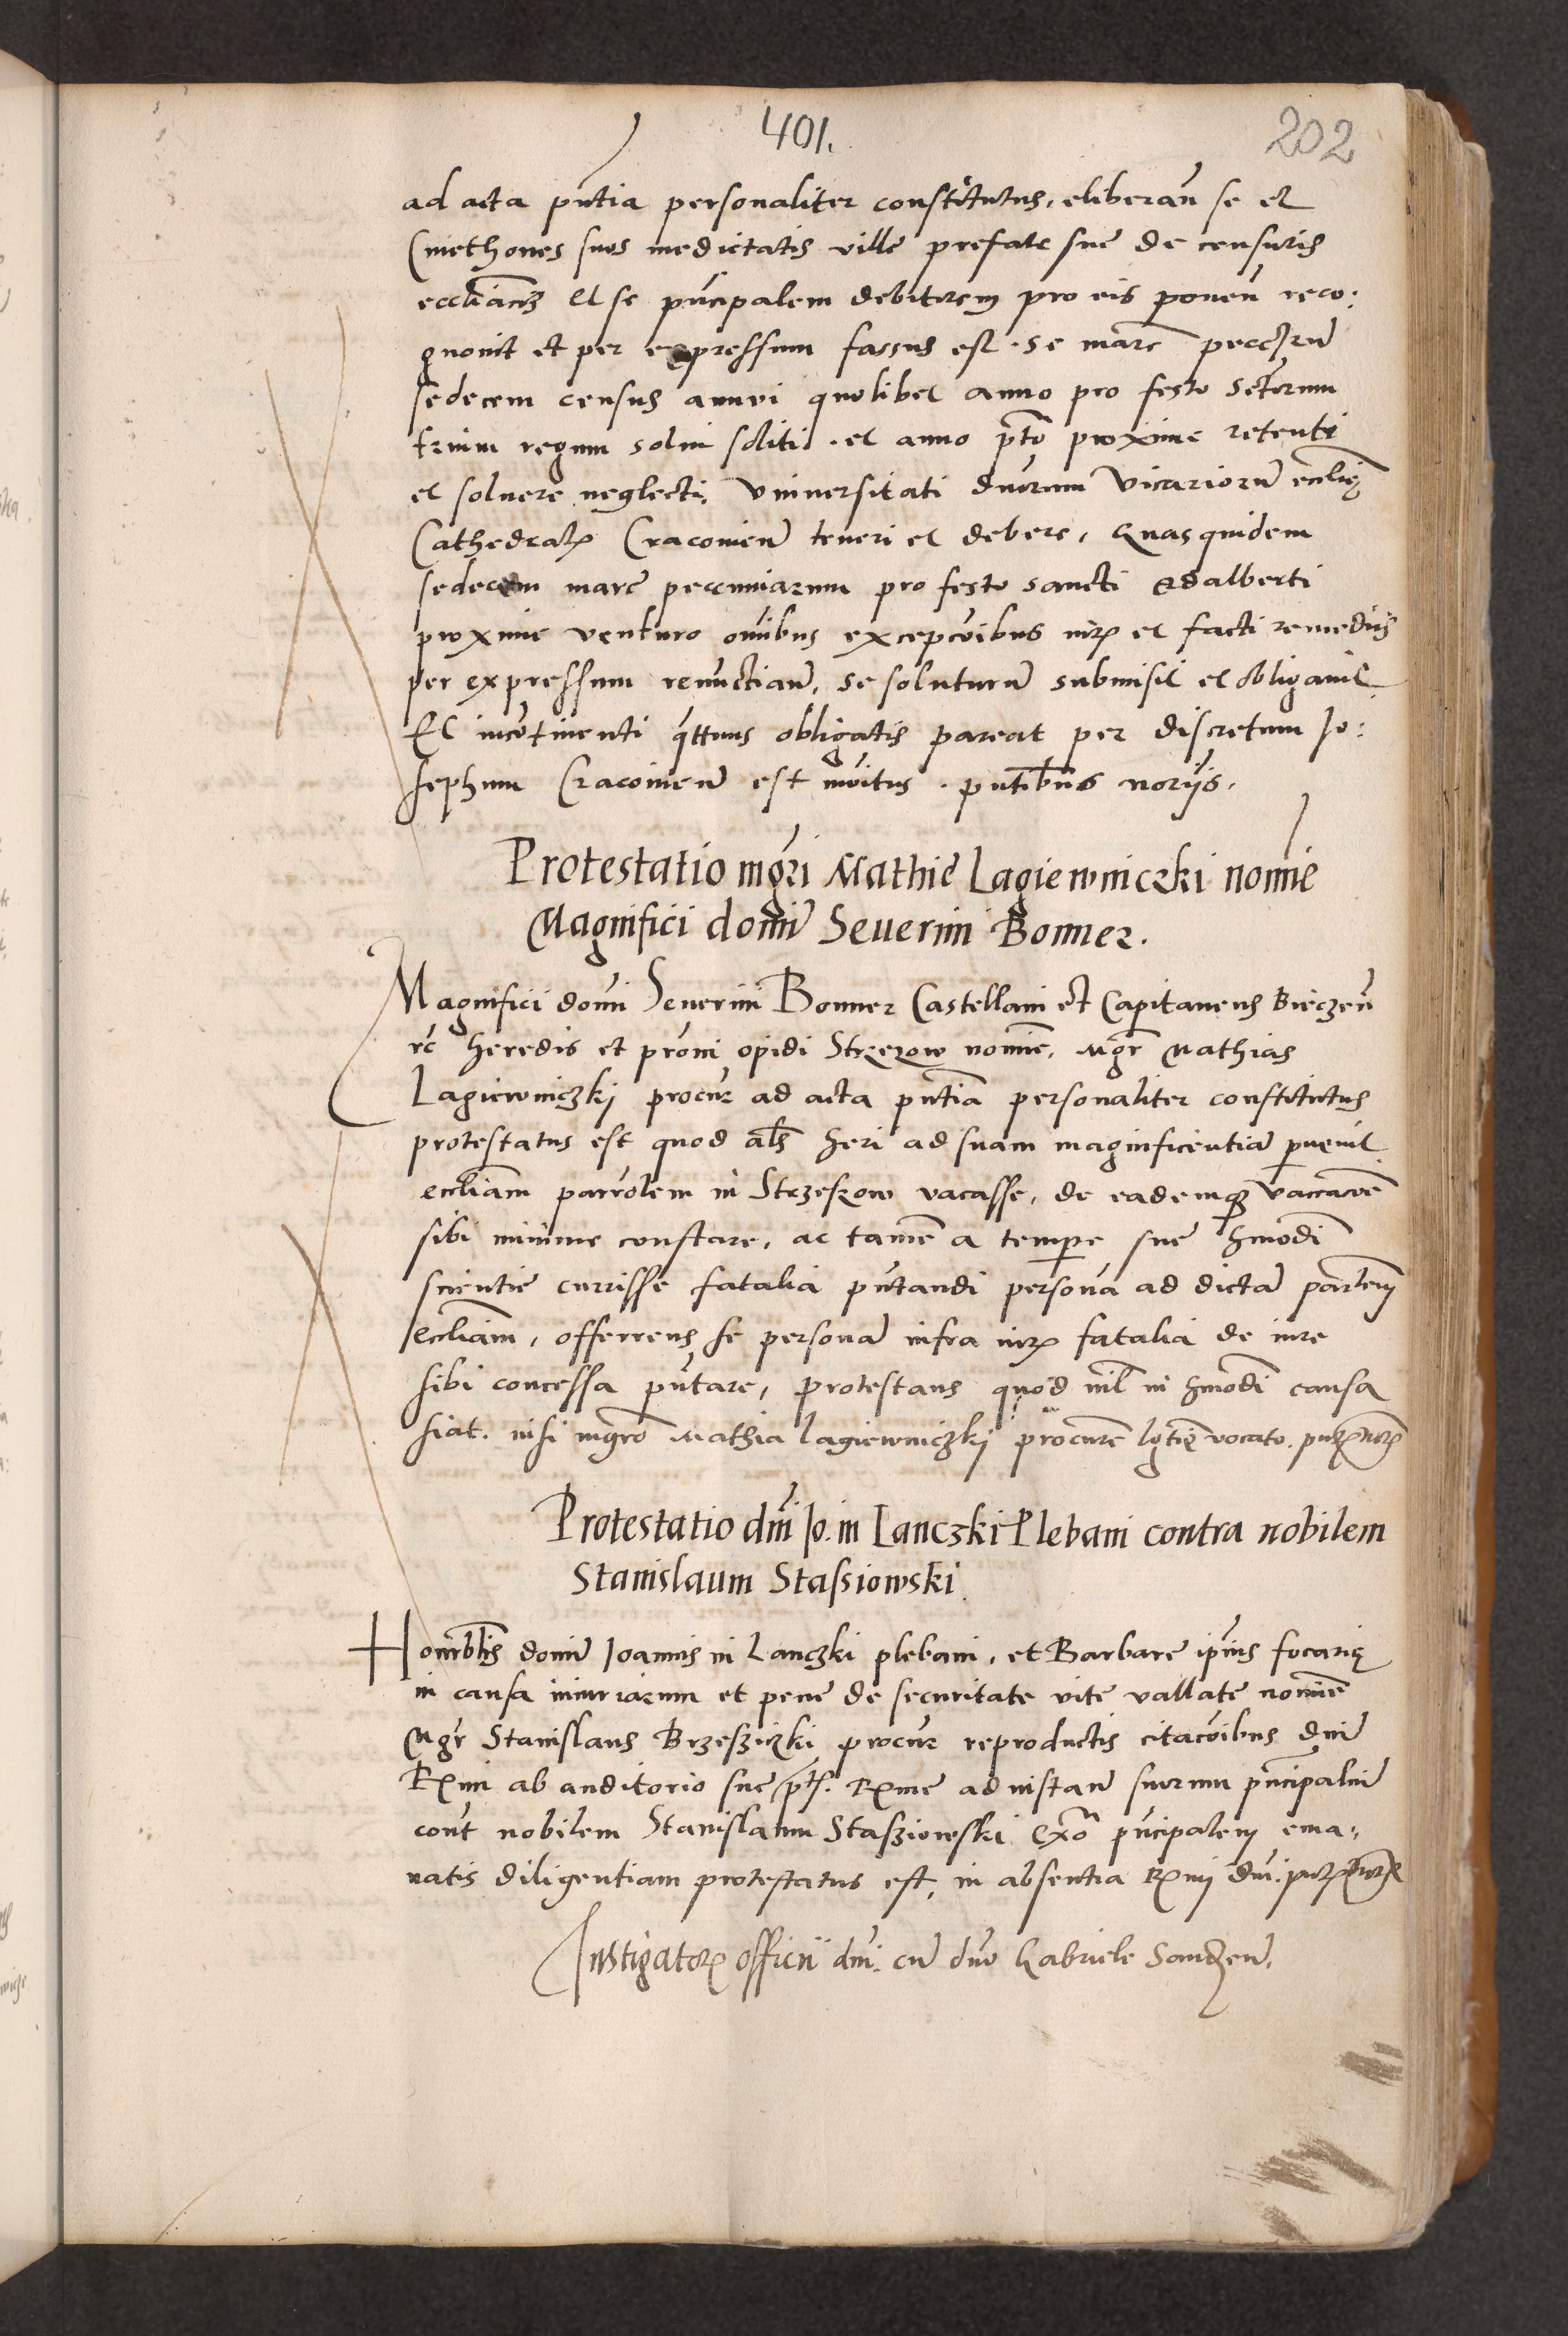 401.
202
ad acta pntia personaliter constitutus, eliberan se et
Cmethones suos medietatis ville prefate sue de censuris
eccliacis et se pncipalem debitorem pro eis ponen reco:
gnovit et per expressum fassus est. se marc peccrum
sedecem census annui quolibet anno pro festo sctorum
trium regum solvi soliti. et anno pnto proxime retenti
et solvere neglecti, Vniversitati dnorum Vicariorum ecclie
Cathedralis Cracovien teneri et debere, Quas quidem
sedecem marc peccuniarum pro festo sancti Adalberti
proxime venturo omibus excepcoibus iuris et facti remedijs
per expressum renuctian, se soluturum submisit et obligavit
Et incotinenti qttenus obligatis pareat per discretum Io:
sephum Cracovien est moitus. pntibus noriis.
Protestatio mgri Mathie Lagiewniczki nomie
Magnifici domi Seuerini Bonner.
Magnifici domi Seuerini Bonner Castellani et Capitaneus Bieczen
rc heredis et proni opidi Strzezow nomie, Mgr Mathias
Lagiewniczkj procur ad acta pntia personaliter constitutus
protestatus est quod als heri ad suam magnificentia pvenit
eccliam parrolem in Strzezow vacasse, de eademq vaccacoe
sibi minime constare, ac tame a tempe sue hmodi
scientie currisse fatalia pntandi persona ad dicta parlem
eccliam, offerrens se persona infra iuris fatalia de iure
sibi concessa pntare, protestans quod nil in hmodi causa
fiat. nisi mgro Mathia Lagiewniczkj procure lgtie vocato.
Protestatio dni Io. in Lanczki Plebani contra nobilem
Stanislaum Stassiowski.
Honorblis domi Ioannis in Lanczki plebani, et Barbare ipius focarie
in causa iniuriarum et pene de securitate vite vallate nomie
Mgr Stanislaus Brzeziczki procur reproductis citacoibus dni
Rmi ab auditorio sue pts. Rme ad instan suorum pncipaliu
cont nobilem Stanislaum Stasziowski exo pncipalem ema,
natis diligentiam protestatus est, in absentia Rmi dni.
Instigatoris officii dni. cu dno Gabriele Sandzen.